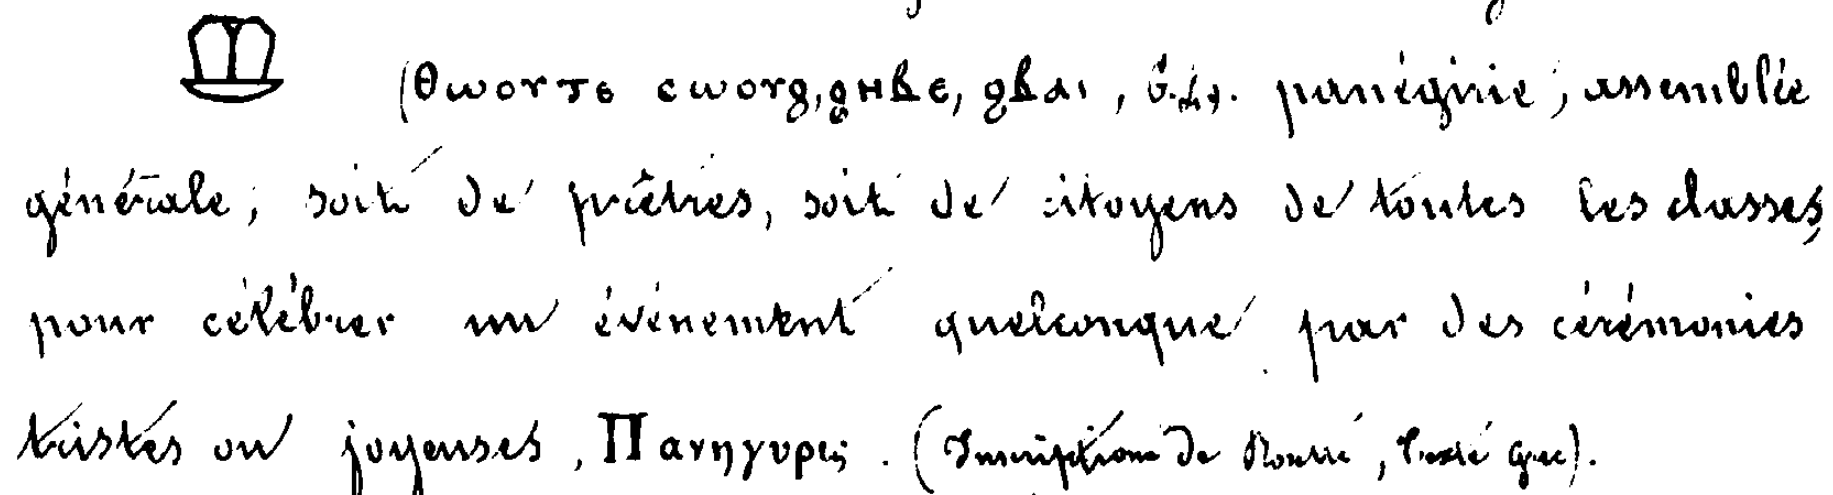 (ⲑⲱⲟⲩⲧⲉ ⲥⲱⲟⲩϩ, ϩⲏⲃⲉ, ϩⲃⲁⲓ, panégirie; assemblée
générale, soit de prêtres, soit de citoyens de toutes les classes,
pour célébrer un événement quelconque par des cérémonies
tristes ou joyeuses, Πανηγυρις. (Inscription de Rosette, texte grec).